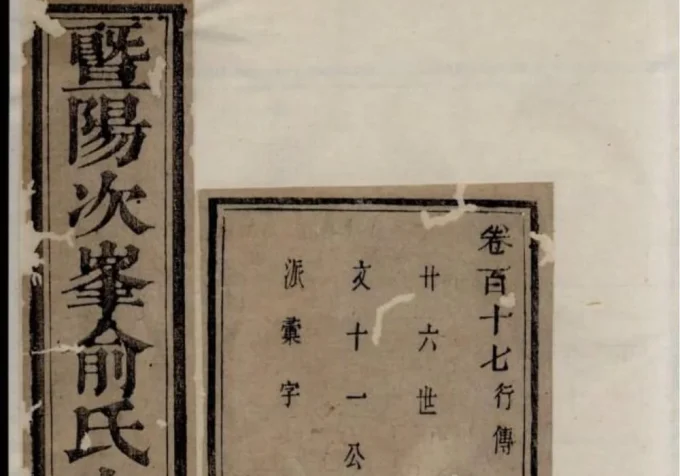 暨陽次峯俞氏
卷百十七行傳
廿六世
文十一公
派字